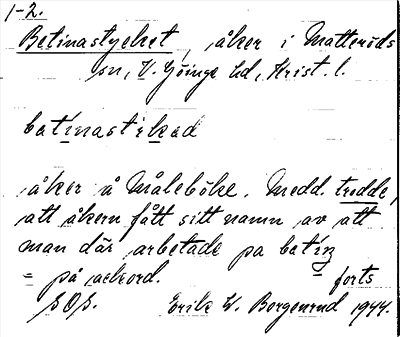 1-2.
Betinastycket, åker i Matteröds
sn, V. Göinge hd, Krist. l.
batinastikad
åker å Måleböke. Medd. trodde,
att åkern fått sitt namn av att
man där arbetade pa batin
= på ackord. forts
SOS. Erik W. Borgenrud 1944.